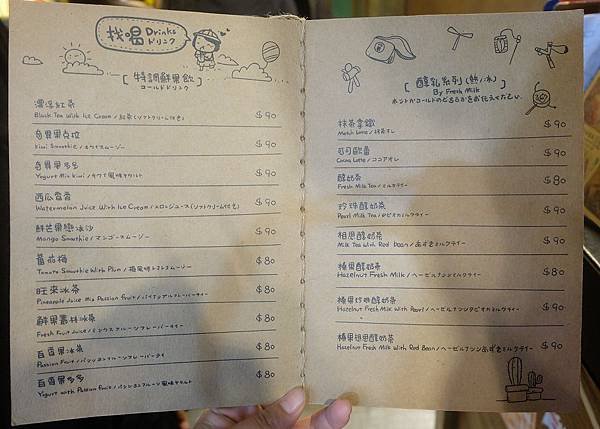 找喝 Drinks
ドリンク
[ 特調鮮果飲 ]
コールドドリンク
漂浮紅茶
Black Tea With Ice Cream / 紅茶(ソフトクリーム付き) $90
奇異果克拉
Kiwi Smoothie / キウイスムージー $90
奇異果多多
Yogurt Mix Kiwi / キウイ風味ヤクルト $90
西瓜雪雪
Watermelon Juice With Ice Cream / メロンジュース(ソフトクリーム付き) $90
鮮芒果戀冰沙
Mango Smothie / マンゴースムージー $90
蕃茄梅
Tomato Smoothie With Plum / 梅風味トマトスムージー $80
旺來冰茶
Pineapple Juice Mix Passion Fruit / パイナップルフレーバーティー $80
鮮果叢林冰茶
Fresh Fruit Juice / ミックスフルーツフレーバーティー $80
百香果冰茶
Passion Fruit / パッションフルーツフレーバーティ $80
百香果多多
Yogurt with Passion Fruit / パッションフルーツ風味ヤクルト $80
[ 醇乳系列 (熱/冰) ]
By Fresh Milk
ホットかコールドのどちらかをお伝えください
抹茶拿鐵
Match Latte / 抹茶オレ $90
可可歐蕾
Cocoa Latte / ココアオレ $90
醇奶茶
Fresh Milk Tea / ミルクティー $80
珍珠醇奶茶
Pearl Milk Tea / タピオカミルクティー $90
相思醇奶茶
Milk Tea With Red bean / あずきミルクティー $90
榛果醇奶茶
Hazelnut Fresh Milk / ヘーゼルナッツミルクティー $80
榛果珍珠醇奶茶
Hazelnut Fresh Milk With Pearl / ヘーゼルナッツタピオカミルクティー $90
榛果相思醇奶茶
Hazelnut Fresh Milk With Red Bean / ヘーゼルナッツあずきミルクティー $90